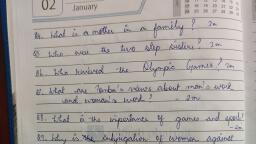 02
January
Q4. What is a mother in a family? 2m
Q5. Who were the two step sisters? 2m
Q6. Who revived the Olympic Games? 2m
Q7. What are Tenba's views about men's work
and women's work? - 2m
Q8. What is the importance of games and sports?
- 2m
Q9. Why is the subjugation of women against